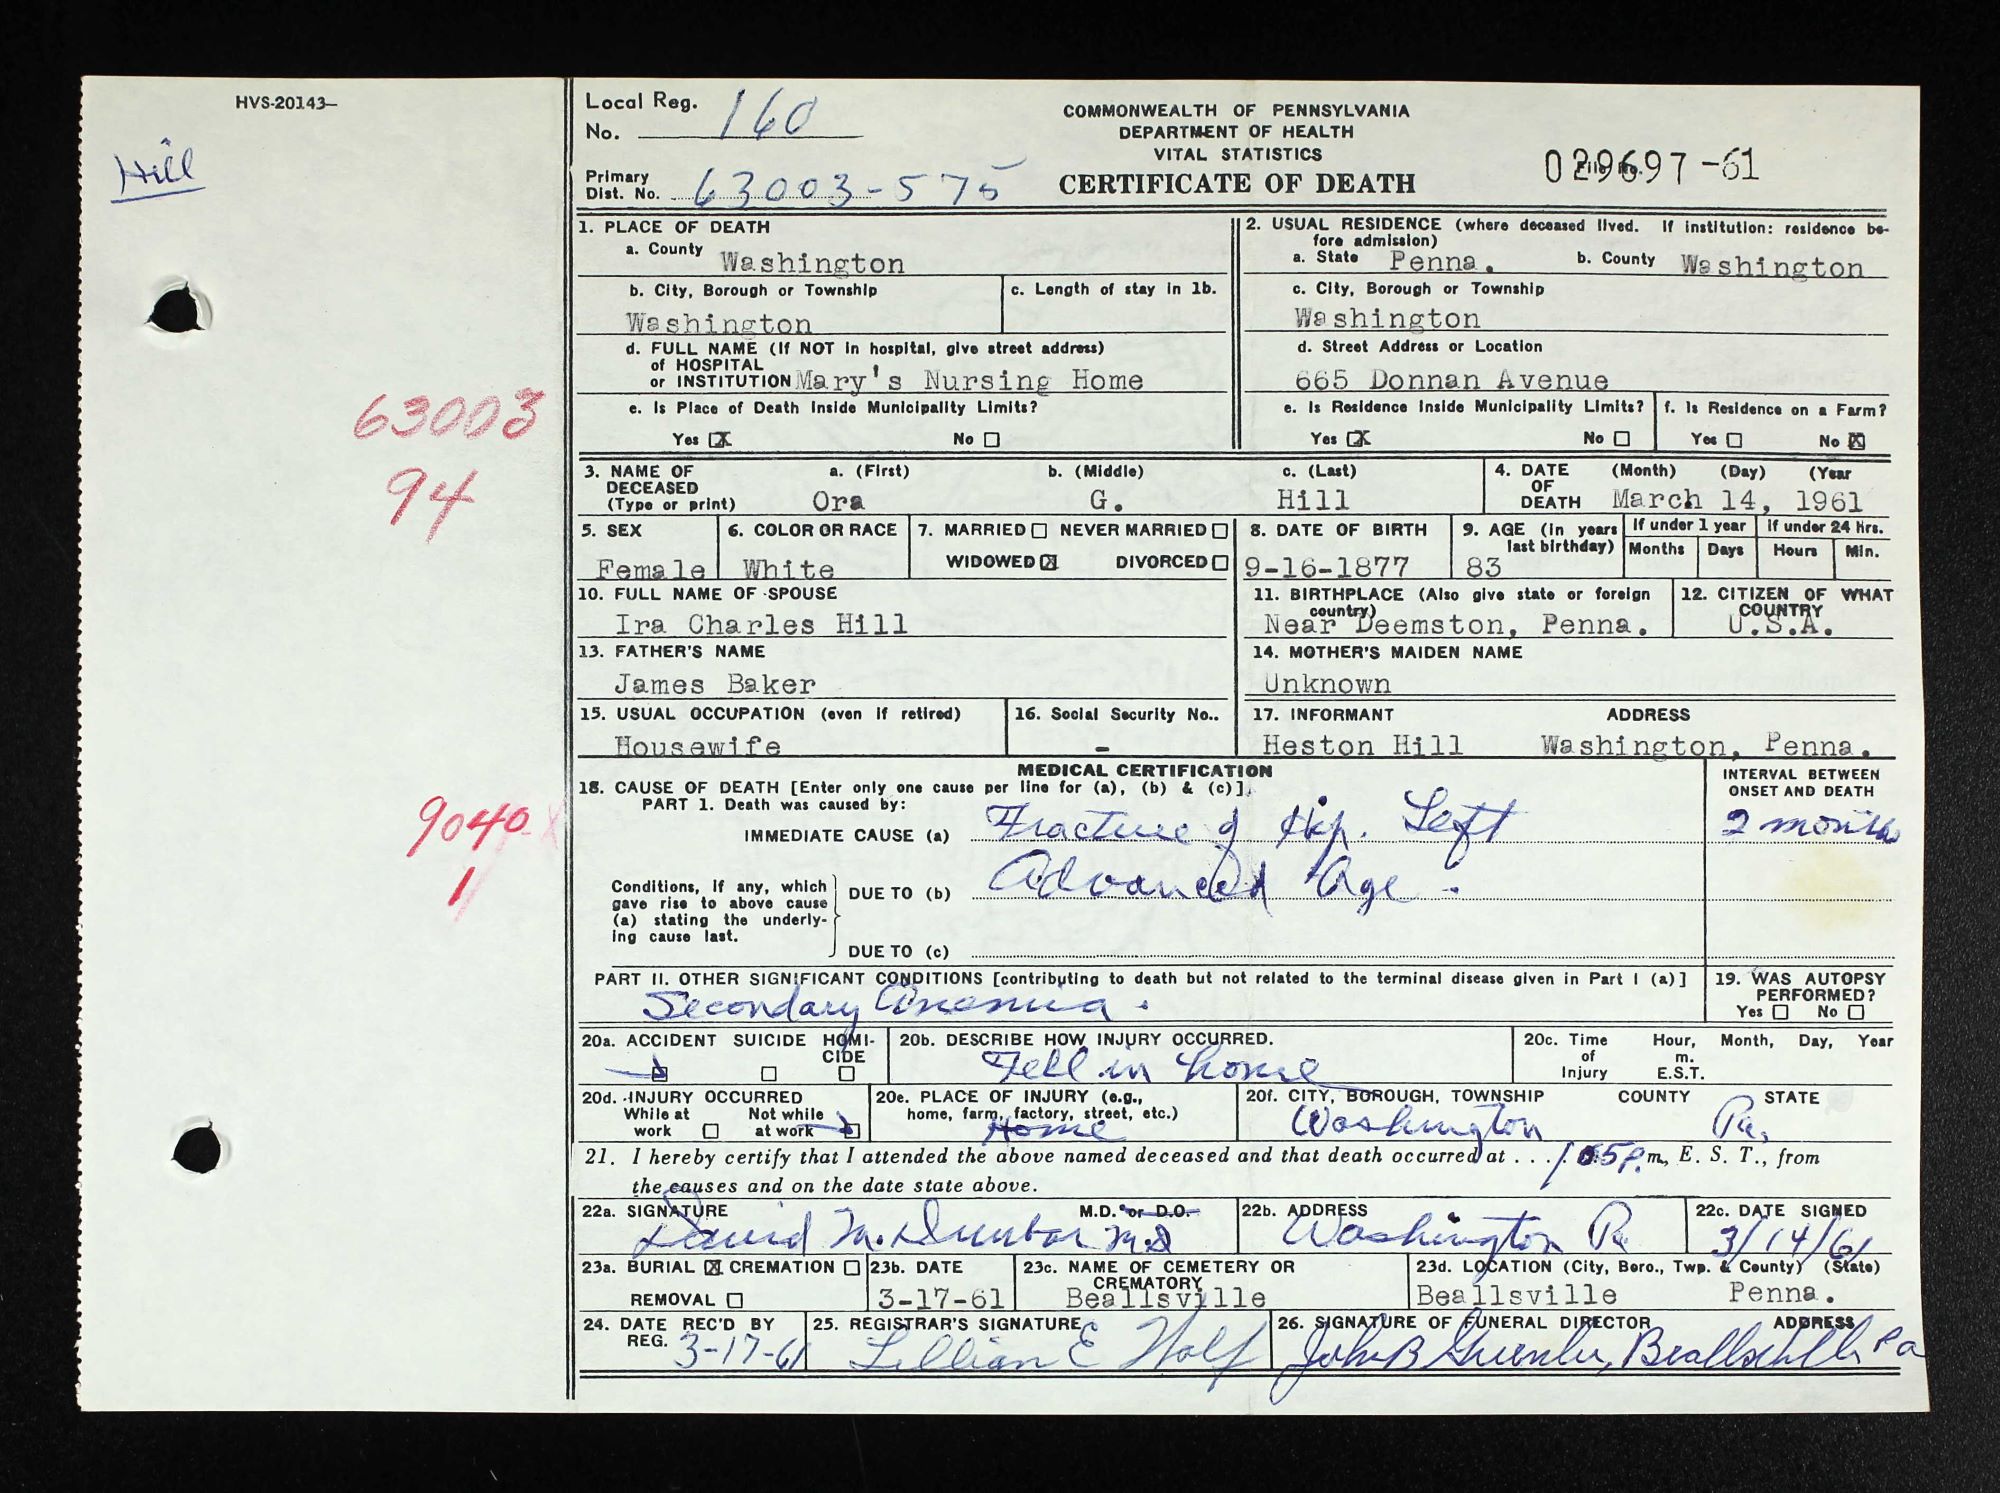 HVS-20143—
Hill
63003
94
9040-X
1
Local Reg.
No. 160
Primary
Dist. No. 63003-575
COMMONWEALTH OF PENNSYLVANIA
DEPARTMENT OF HEALTH
VITAL STATISTICS
CERTIFICATE OF DEATH
029697-61
1. PLACE OF DEATH
a. County Washington
b. City, Borough or Township
Washington
c. Length of stay in 1b.
d. FULL NAME (If NOT in hospital, give street address)
of HOSPITAL
or INSTITUTION Mary's Nursing Home
e. Is Place of Death Inside Municipality Limits?
Yes ☒ No ☐
2. USUAL RESIDENCE (where deceased lived. If institution: residence be-
fore admission)
a. State Penna. b. County Washington
c. City, Borough or Township
Washington
d. Street Address or Location
665 Donnan Avenue
e. Is Residence Inside Municipality Limits?
Yes ☒ No ☐
f. Is Residence on a Farm?
Yes ☐ No ☒
3. NAME OF DECEASED (Type or print)
a. (First) b. (Middle) c. (Last)
Ora G. Hill
4. DATE OF DEATH (Month) (Day) (Year
March 14, 1961
5. SEX
Female
6. COLOR OR RACE
White
7. MARRIED ☐ NEVER MARRIED ☐
WIDOWED ☒ DIVORCED ☐
8. DATE OF BIRTH
9-16-1877
9. AGE (in years
last birthday)
83
If under 1 year
Months Days
If under 24 hrs.
Hours Min.
10. FULL NAME OF SPOUSE
Ira Charles Hill
11. BIRTHPLACE (Also give state or foreign
country)
Near Deemston, Penna.
12. CITIZEN OF WHAT
COUNTRY
U.S.A.
13. FATHER'S NAME
James Baker
14. MOTHER'S MAIDEN NAME
Unknown
15. USUAL OCCUPATION (even if retired)
Housewife
16. Social Security No..
-
17. INFORMANT ADDRESS
Heston Hill Washington, Penna.
MEDICAL CERTIFICATION
18. CAUSE OF DEATH [Enter only one cause per line for (a), (b) & (c)].
PART 1. Death was caused by:
IMMEDIATE CAUSE (a) Fracture of Hip. Left
INTERVAL BETWEEN
ONSET AND DEATH
2 months
Conditions, if any, which
gave rise to above cause
(a) stating the underly-
ing cause last.
DUE TO (b) Advanced Age -
DUE TO (c)
PART II. OTHER SIGNIFICANT CONDITIONS [contributing to death but not related to the terminal disease given in Part I (a)]
Secondary Anemia.
19. WAS AUTOPSY
PERFORMED?
Yes ☐ No ☐
20a. ACCIDENT SUICIDE HOMI-
CIDE
20b. DESCRIBE HOW INJURY OCCURRED.
Fell in home
20c. Time Hour, Month, Day, Year
of m.
Injury E.S.T.
20d. INJURY OCCURRED
While at Not while
work ☐ at work ☑
20e. PLACE OF INJURY (e.g.,
home, farm, factory, street, etc.)
Home
20f. CITY, BOROUGH, TOWNSHIP COUNTY STATE
Washington Pa.
21. I hereby certify that I attended the above named deceased and that death occurred at . . . 1:05 P.m., E. S. T., from
the causes and on the date state above.
22a. SIGNATURE M.D. or D.O.
David M. Dunbar M.D
22b. ADDRESS
Washington Pa
22c. DATE SIGNED
3/14/61
23a. BURIAL ☒ CREMATION ☐
REMOVAL ☐
23b. DATE
3-17-61
23c. NAME OF CEMETERY OR
CREMATORY
Beallsville
23d. LOCATION (City, Boro., Twp. & County) (State)
Beallsville Penna.
24. DATE REC'D BY
REG. 3-17-61
25. REGISTRAR'S SIGNATURE
Lillian E Wolf
26. SIGNATURE OF FUNERAL DIRECTOR ADDRESS
John B Greenlee, Beallsville Pa